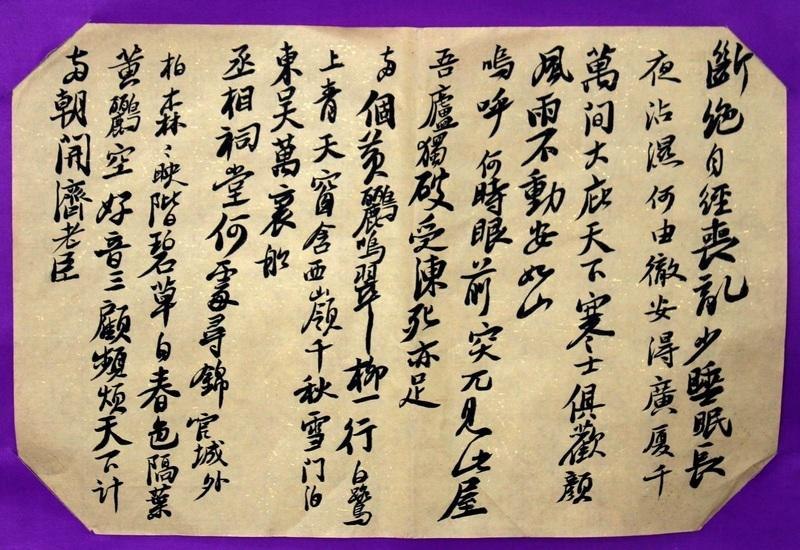 斷絕自經喪亂少睡眠長
夜沾濕何由徹安得廣厦千
萬間大庇天下寒士俱歡顏
風雨不動安如山
嗚呼何時眼前突兀見此屋
吾廬獨破受凍死亦足
兩個黃鸝鳴翠柳一行白鷺
上青天窗含西嶺千秋雪门泊
東吴萬裏船
丞相祠堂何處尋錦官城外
柏森〻映階碧草自春色隔葉
黄鸝空好音三顧頻烦天下计
兩朝開濟老臣